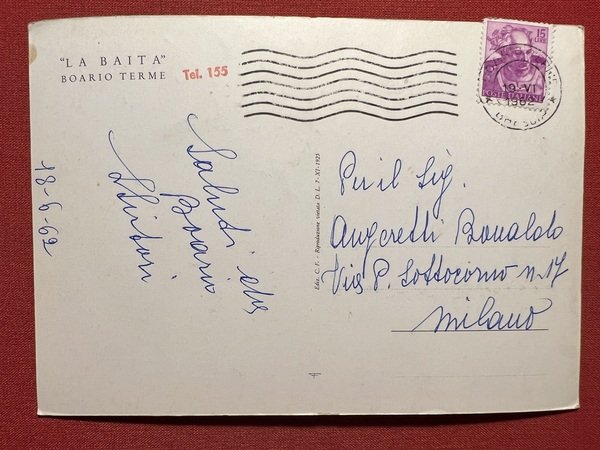 "LA BAITA"
BOARIO TERME
Tel. 155
15
LIRE
POSTE ITALIANE
19-VI
1962
BRESCIA
18-6-62
Saluti da
Boario
Edit. C. F. - Riproduzione vietata D. L. 7-XI-1925
Per il Sig.
Angeretti Bonaldo
Via P. Sottocorno n. 17
Milano